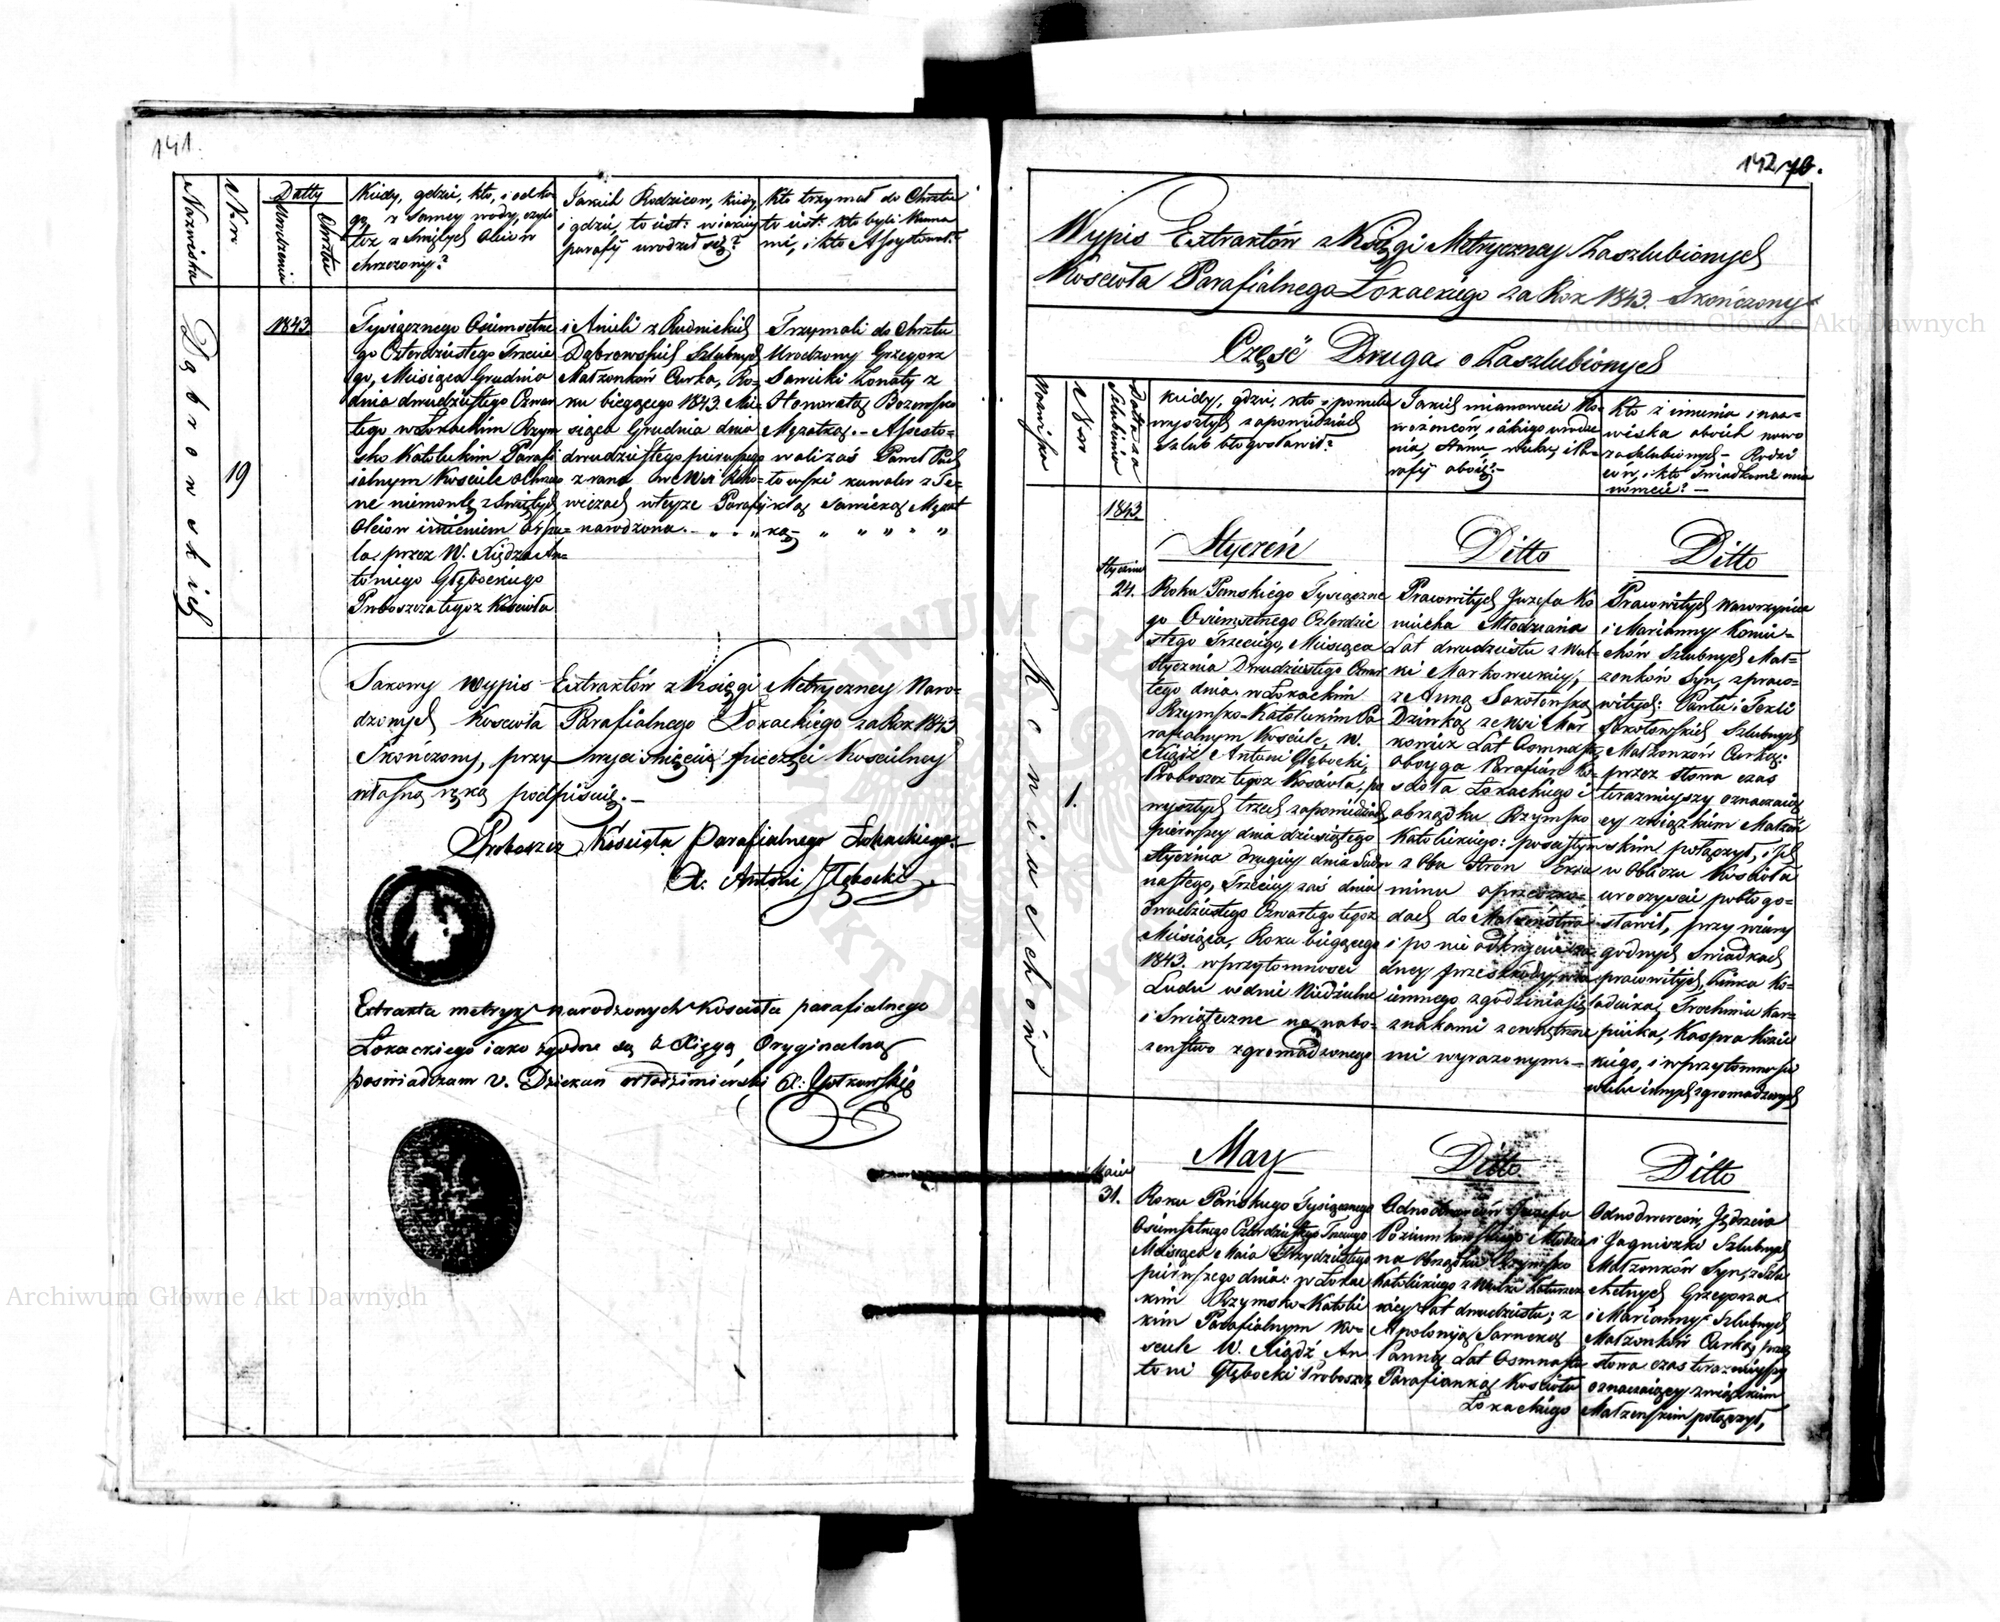 141.
Nazwiska
Nror
Datty
Urodzenia
Chrztu
Kiedy, gdzie, kto, i od ko
go z samey wody, czyli
też z Świętych Oleiów
chrzczony?
Jakich Rodziców, kiedy,
i gdzie, to iest: w iakiey
parafij urodził się?
Kto trzymał do Chrztu
to iest: kto byli Kuma
mi, i kto Assystował?
Dąbrowskich
19
1843
Tysiącznego Ośmsetne
go Czterdziestego Trzecie
go, Miesiąca Grudnia
dnia dwudziestego Czwar
tego w Łokackim Rzym
sko Katolickim Parafi
ialnym Kościele
ne niemowlę z Świętych
Oleiów imieniem
la przez W. Xiędza An=
toniego Głębockiego
Proboszcza tegoż Kościoła
i Anieli z Rudnickich
Dąbrowskich Szlubnych
Małżonków Curka, Ro=
ku bieżącego 1843. Mie
siąca Grudnia dnia
dwudziestego pierwszego
z rana we Wsi
wiczach w teyże Parafij
narodzona.
Trzymali do Chrztu
Urodzony Grzegorz
Sawicki Żonaty z
Honoratą
Mężatką. Assesto=
wali zaś Paweł
kawaler z Te=
klą Sawicką Mężat
ką
Takowy Wypis Extraktów z Księgi Metryczney Naro=
dzonych Kościoła Parafialnego Łokackiego za Rok 1843
Skończony, przy wyciśnięciu pieczęci Kościelney
własną ręką podpisuię.
Proboszcz Kościoła Parafialnego Łokackiego
X. Antoni Głębocki
Extrakta metryk narodzonych Kościoła parafialnego
Łokackiego iako zgodne są z Xięgą Oryginalną
poświadczam v. Dziekan Włodzimierski X.
142
76.
Wypis Extraktów z Księgi Metryczney Zaszlubionych
Kościoła Parafialnego Łokackiego za Rok 1843. Skończony
Część Druga o Zaszlubionych
Nazwiska
Nror
Datta za
Szlubienia
Kiedy, gdzie, kto i po wielu
wyszłych zapowiedziach
szlub błogosławił?
Jakich mianowicie No=
wożeńców, iakiego urodze
nia, stanu, wieku, i Pa=
rafij oboie?
Kto z imienia i naz=
wiska oboich nowo
zaszlubionych Rodzi
ców, i kto Świadkami
Koniuchów
1.
1843.
Stycznia
24.
Styczeń
Roku Pańskiego Tysiączne
go Ośmsetnego Czterdzie
stego Trzeciego, Miesiąca
Stycznia Dwudziestego Czwar
tego dnia w Łokackim
Rzymsko-Katolickim Pa
rafialnym Kościele, W.
Xiądz Antoni Głębocki,
Proboszcz tegoż Kościoła, po
wyszłych trzech zapowiedziach
pierwszey dnia dziesiątego
Stycznia drugiey dnia
nastego, Trzeciey zaś dnia
dwudziestego Czwartego tegoż
Miesiąca, Roku bieżącego
1843. w przytomności
Ludu w dnie Niedzielne
i Świąteczne na nabo=
żeństwo zgromadzonego
Ditto
Pracowitych Jozefa Ko
niucha Młodziana
Lat dwudziestu z Wsi
z Anną Sokołowską
Dziewką ze Wsi Mar
kowicz Lat Ośmnastu
oboyga Parafian Ko
ścioła Łokackiego i
obrządku Rzymsko
Katolickiego: po ścisłym
z Obu Stron Exa
minie o przeszko=
dach do Małżeństwa
i po nie odkryciu ża
dney przeszkody, wza
iemnego zgodzenia się
znakami zewnętrzne
mi wyrażonym.
Ditto
Pracowitych Wawrzyńca
i Marianny Koniu=
chów Szlubnych Mał=
żonków Syn, z praco=
witych: Pawła i Tekli
Sokołowskich Szlubnych
Małżonków Curką:
przez słowa czas
teraznieyszy oznaczaią
cy związkiem Małżeń
skim połączył, i ich
w Obliczu Kościoła
uroczyście pobłogo=
sławił, przy wiary
godnych Świadkach
pracowitych,
i w przytomności
wielu innych zgromadzonych
Maia
31.
May
Roku Pańskiego Tysiącznego
Ośmsetnego Czterdziestego Trzeciego
Miesiąca Maia Trzydziestego
pierwszego dnia: w Łokac
kim Rzymsko-Katolic
kim Parafialnym Ko=
ściele W. Xiądz An
toni Głębocki Proboszcz
Ditto
Odnodworców Jozefa
na Obrządku Rzymsko
Katolickiego z
Lat dwudziestu; z
Apolonią Sarnecką
Panną Lat Ośmnastu
Parafianką Kościoła
Łokackiego
Ditto
Odnodworców, Jędrzeia
i Jagnieszki Szlubnych
Małżonków Syn, z Szla
chetnych Grzegorza
i Marianny Szlubnych
Małżonków Curką, przez
słowa czas teraznieyszy
oznaczaiący związkiem
Małżeńskim połączył,
Archiwum Główne Akt Dawnych
Archiwum Główne Akt Dawnych